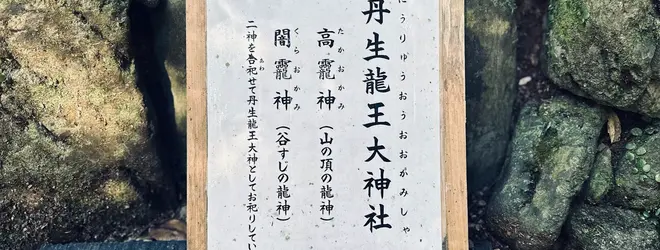 丹生龍王大神社
にうりゅうおうおおがみしゃ
高龗神(山の頂の龍神)
たかおかみ
闇龗神(谷すじの龍神)
くらおかみ
二神を合祀せて丹生龍王大神としてお祀りしてい
あわ